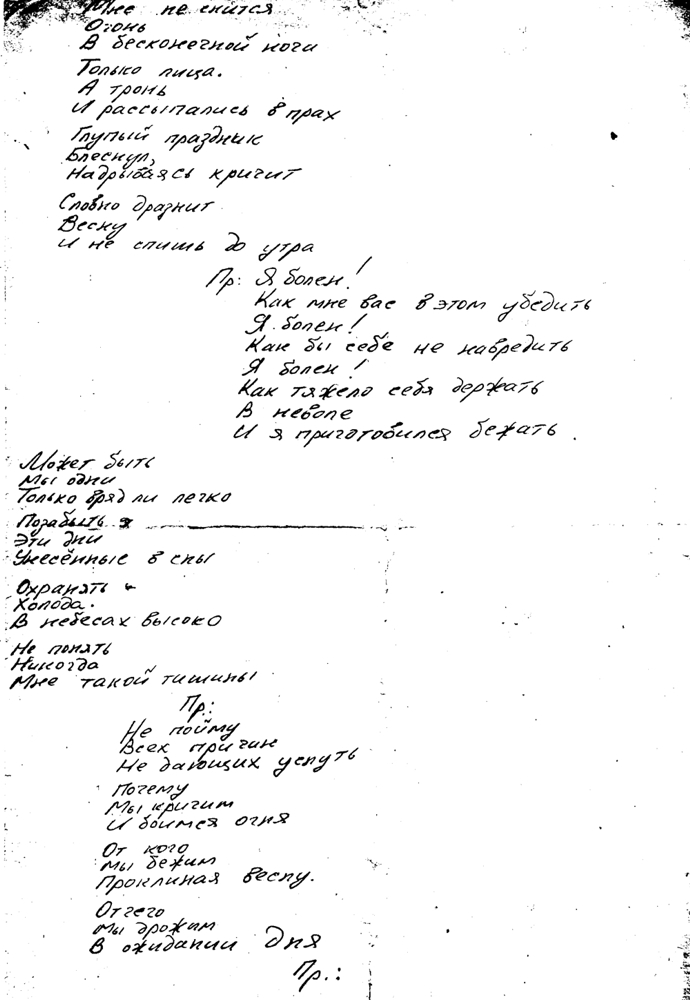 Мне не снится
Огонь
В бесконечной ночи
Только лица.
А тронь
И рассыпались в прах
Глупый праздник
Блеснул,
Надрываясь кричит
Словно дразнит
Весну
И не спишь до утра
Пр: Я болен!
Как мне вас в этом убедить
Я болен!
Как бы себе не навредить
Я болен!
Как тяжело себя держать
В неволе
И я приготовился бежать.
Может быть
Мы одни
Только вряд ли легко
Позабыть
Эти дни
Унесённые в сны
Охранять
Холода.
В небесах высоко
Не понять
Никогда
Мне такой тишины
Пр.:
Не пойму
Всех причин
Не дающих уснуть
Почему
Мы кричим
И боимся огня
От кого
Мы бежим
Проклиная весну.
Отчего
Мы дрожим
В ожидании дня
Пр.: